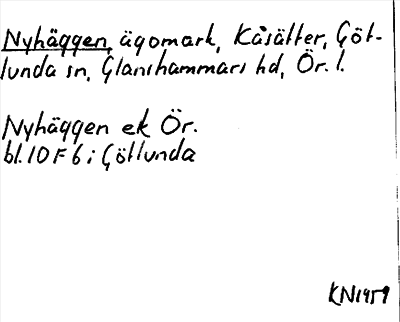 Nyhäggen, ägomark, Kåsätter, Göt-
lunda sn, Glanshammars hd, Ör. l.
Nyhäggen ek Ör.
bl. 10 F 6 i Götlunda
KN 1959